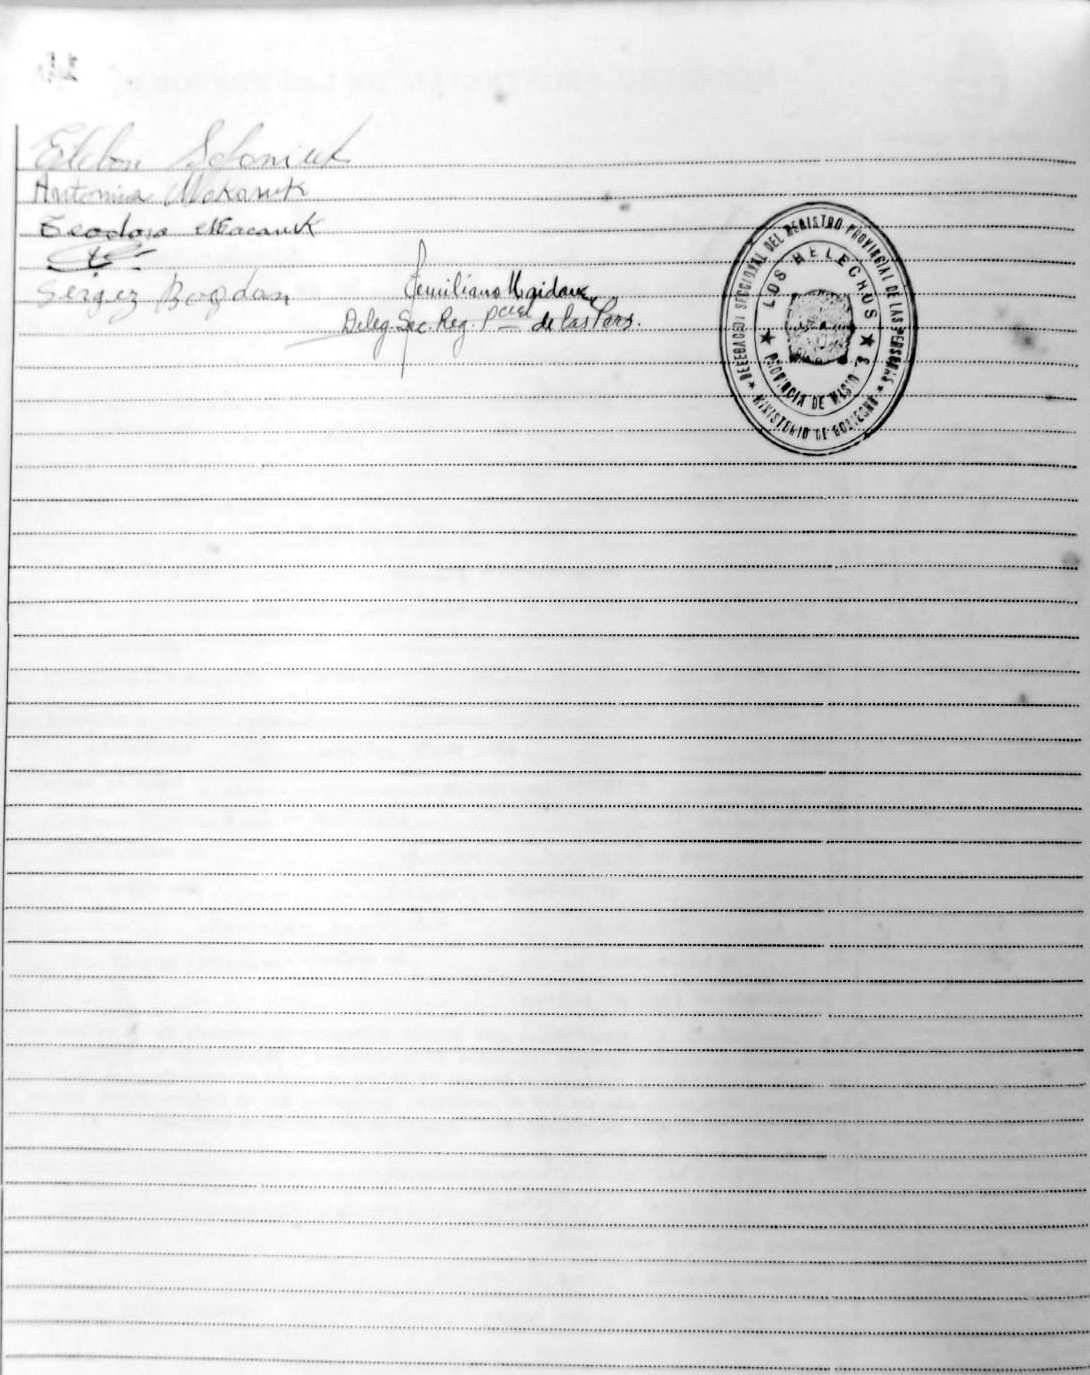 Esteban Soloniuk
Antonina Mokaniuk
Teodosio Macaniuk
Sergez Bogdan
Deleg. Sec. Reg. Pcial de las Pers.
DELEGACION SECCIONAL DEL REGISTRO PROVINCIAL DE LAS PERSONAS
★ MINISTERIO DE GOBIERNO ★
LOS HELECHOS
★ PROVINCIA DE MISIO S ★